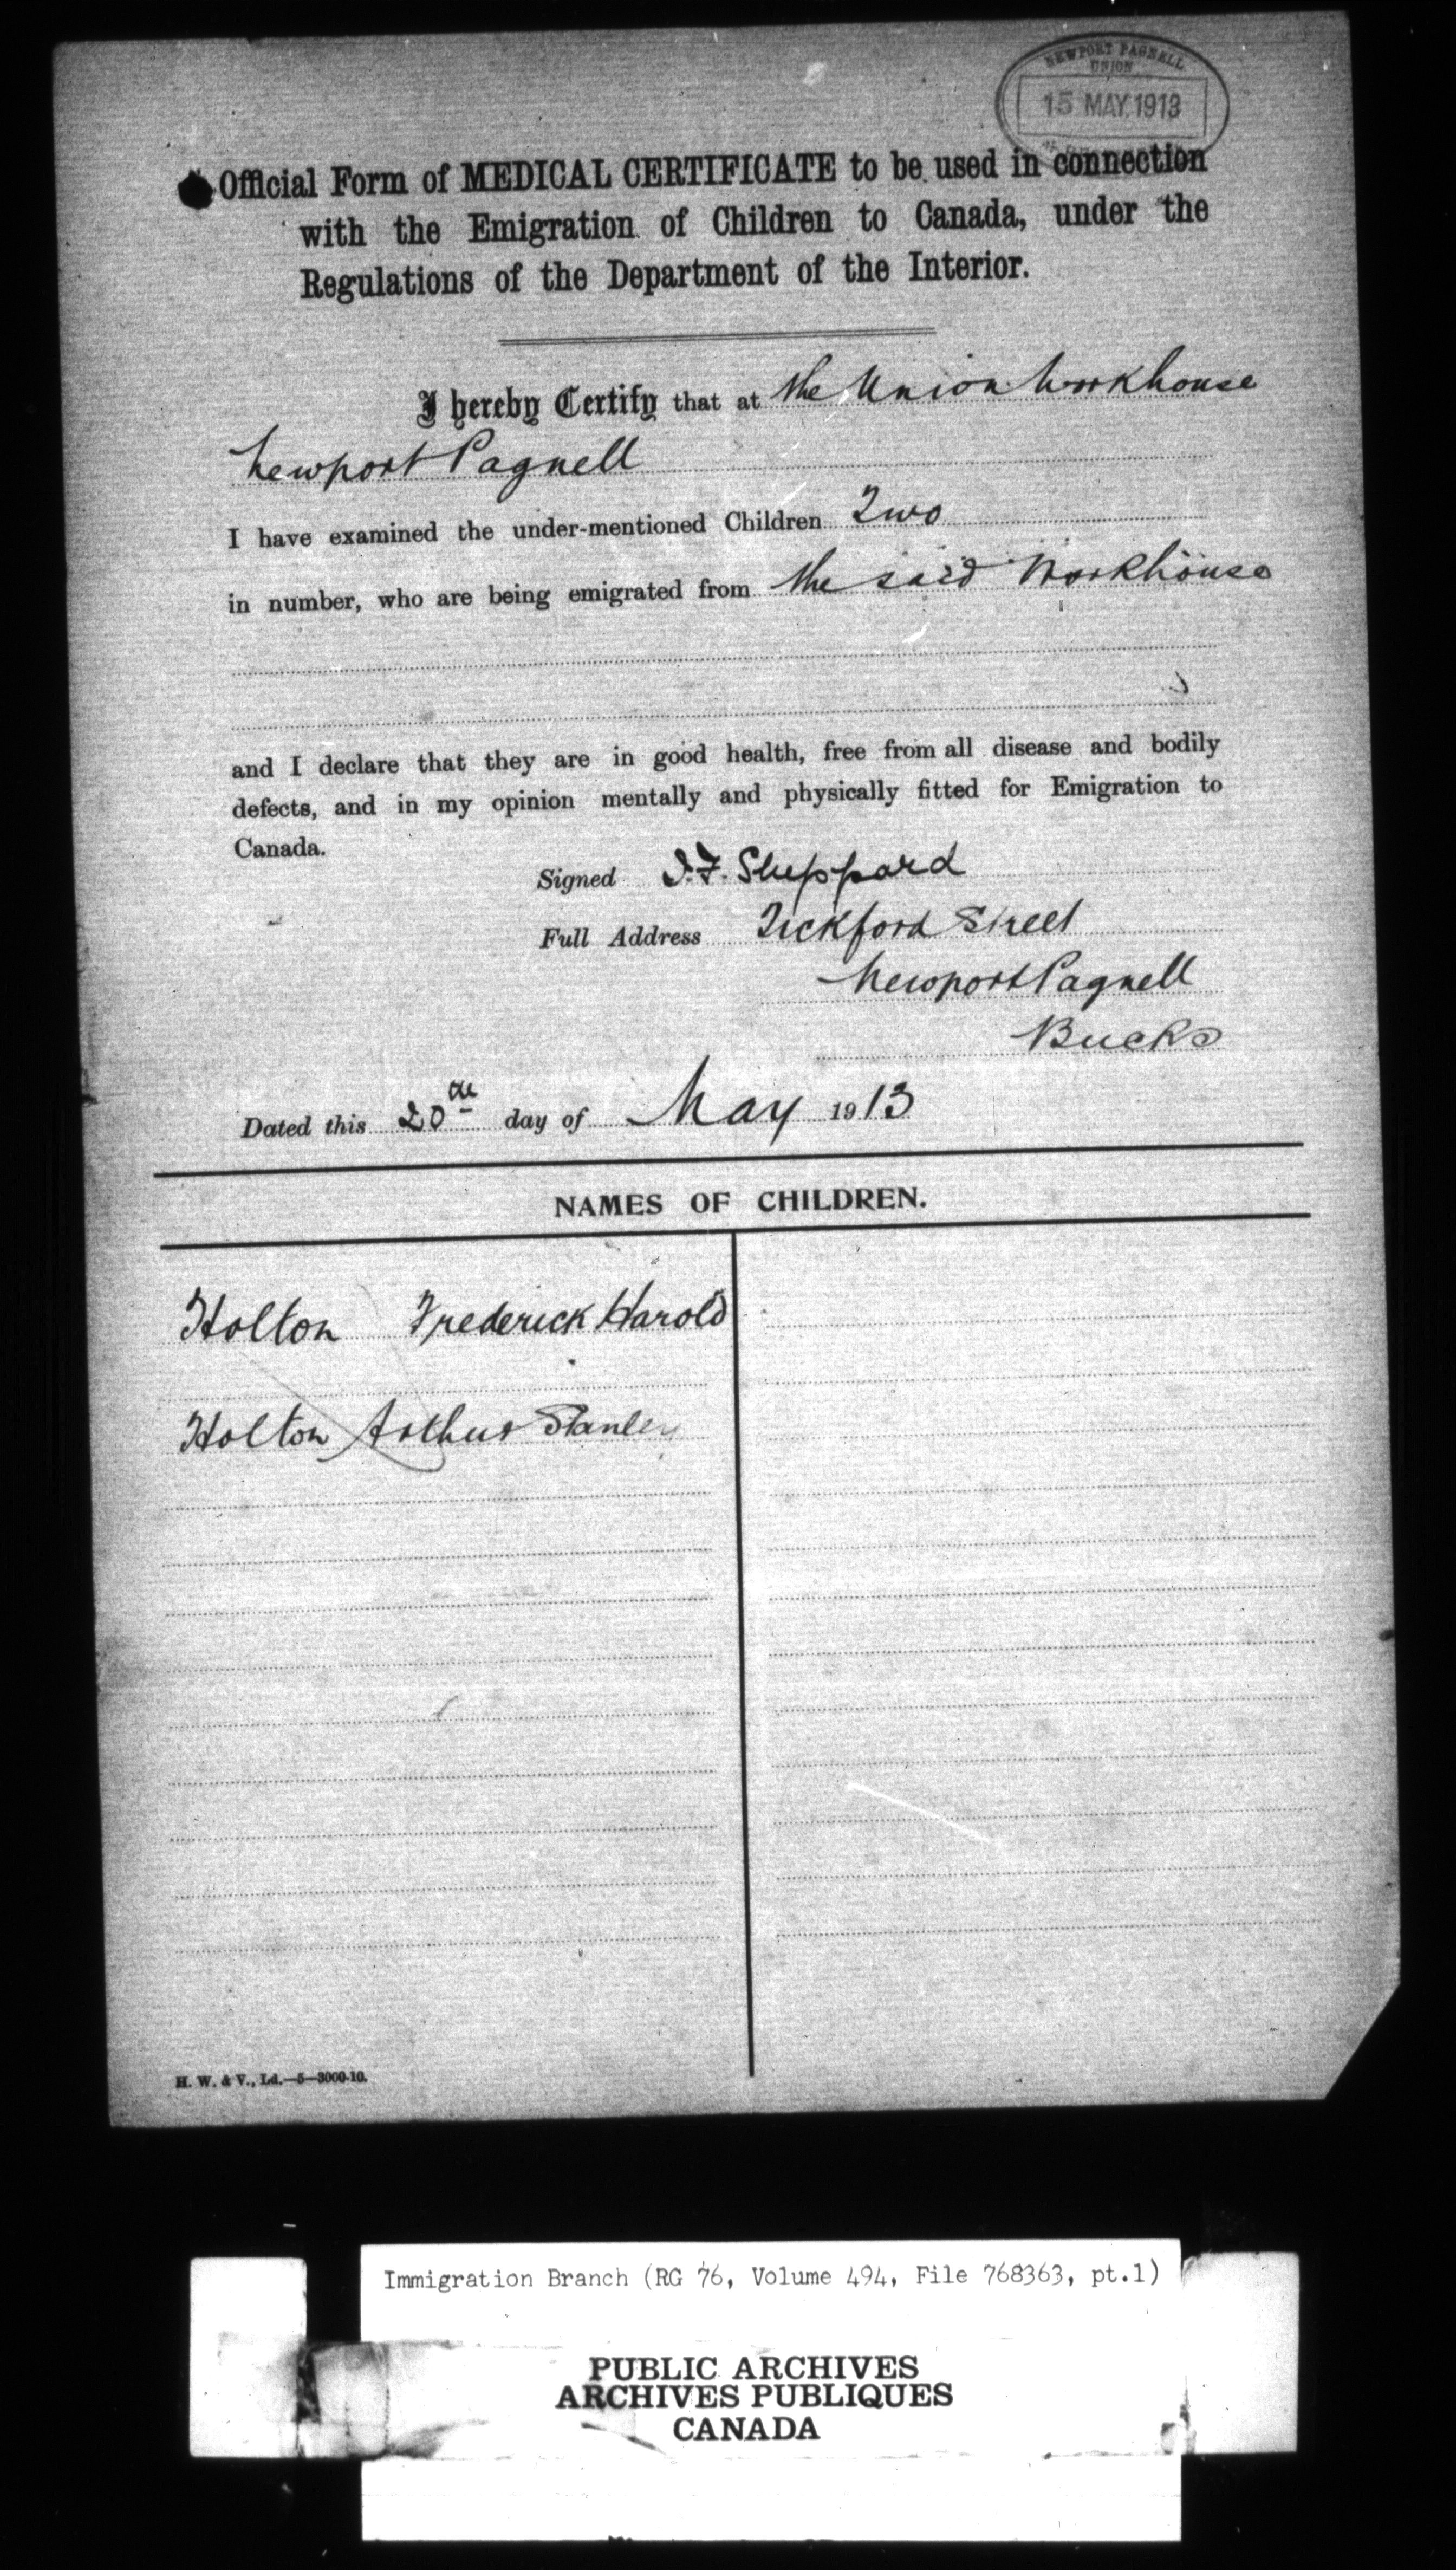 NEWPORT PAGNELL
UNION
15 MAY. 1913
Official Form of MEDICAL CERTIFICATE to be used in connection
with the Emigration of Children to Canada, under the
Regulations of the Department of the Interior.
I hereby Certify that at the Union Workhouse
Newport Pagnell
I have examined the under-mentioned Children Two
in number, who are being emigrated from the said Workhouse
and I declare that they are in good health, free from all disease and bodily
defects, and in my opinion mentally and physically fitted for Emigration to
Canada.
Signed Sheppard
Full Address Tickford Street
Newport Pagnell
Bucks
Dated this 20th day of May 1913
NAMES OF CHILDREN.
Holton Frederick Harold
Holton Arthur Stanley
H. W. & V., Ld.—5—3000-10.
Immigration Branch (RG 76, Volume 494, File 768363, pt.1)
PUBLIC ARCHIVES
ARCHIVES PUBLIQUES
CANADA